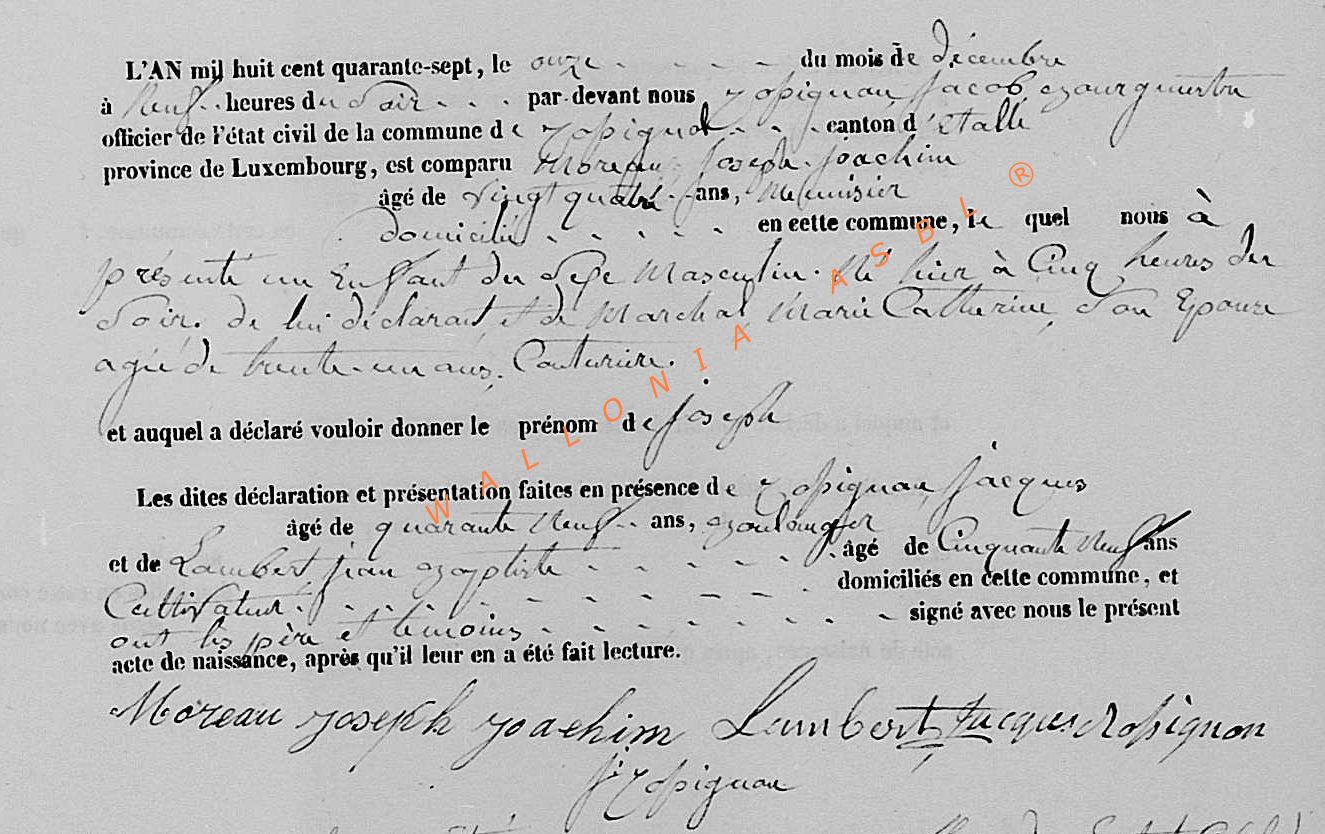 L'AN mil huit cent quarante-sept, le onze - - - - du mois de décembre
à neuf heures du Soir - - - par-devant nous Rossignon Jacob Bourguemestre
officier de l'état civil de la commune de Rossignol - - - canton d'Etalle
province de Luxembourg, est comparu Moreau Joseph Joachim
âgé de vingt quatre ans, Menuisier
domicilié - - - - - en cette commune, le quel nous à
présenté un Enfant du Sexe Masculin. Né hier à Cinq heures du
Soir. de lui déclarant et de Marchal Marie Catherine, Son Epouse
agée de trente-un ans. Couturière.
et auquel a déclaré vouloir donner le prénom de Joseph
Les dites déclaration et présentation faites en présence de Rossignon Jacques
âgé de quarante Neuf ans, Boulanger
et de Lambert jean Baptiste - - - - - âgé de Cinquante Neuf ans
Cultivateur - - - - - - - domiciliés en cette commune, et
ont les père et temoins - - - - - - - signé avec nous le présent
acte de naissance, après qu'il leur en a été fait lecture.
Moreau Joseph Joachim Lambert Jacques Rossignon
J. Rossignon
WALLONIA ASBL ®